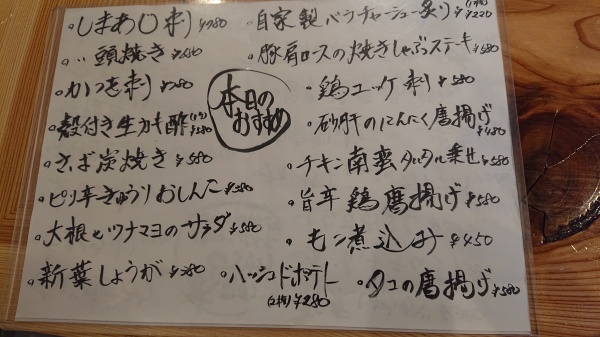 しまあじ刺
〃頭焼き
かつを刺
殻付き生カキ酢
さば炭焼き ¥580
ピリ辛きゅうりおしんこ
大根とツナマヨのサラダ ¥580
新葉しょうが
本日の
おすすめ
自家製バラチャーシュー炙り
豚肩ロースの焼きしゃぶステーキ ¥580
鶏ユッケ刺 ¥580
砂肝のにんにく唐揚げ ¥480
チキン南蛮タルタル乗せ ¥580
旨辛鶏唐揚げ ¥580
モツ煮込み ¥450
ハッシュドポテト
¥280
タコの唐揚げ ¥580